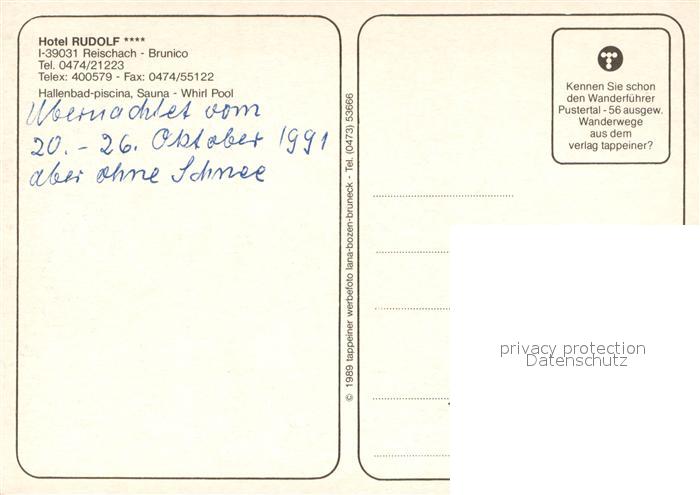 Hotel RUDOLF ****
I-39031 Reischach - Brunico
Tel. 0474/21223
Telex: 400579 - Fax: 0474/55122
Hallenbad-piscina, Sauna - Whirl Pool
Übernachtet vom
20. - 26. Oktober 1991
aber ohne Schnee
© 1989 tappeiner werbefoto lana-bozen-bruneck - Tel. (0473) 53666
Kennen Sie schon
den Wanderführer
Pustertal - 56 ausgew.
Wanderwege
aus dem
verlag tappeiner?
privacy protection
Datenschutz